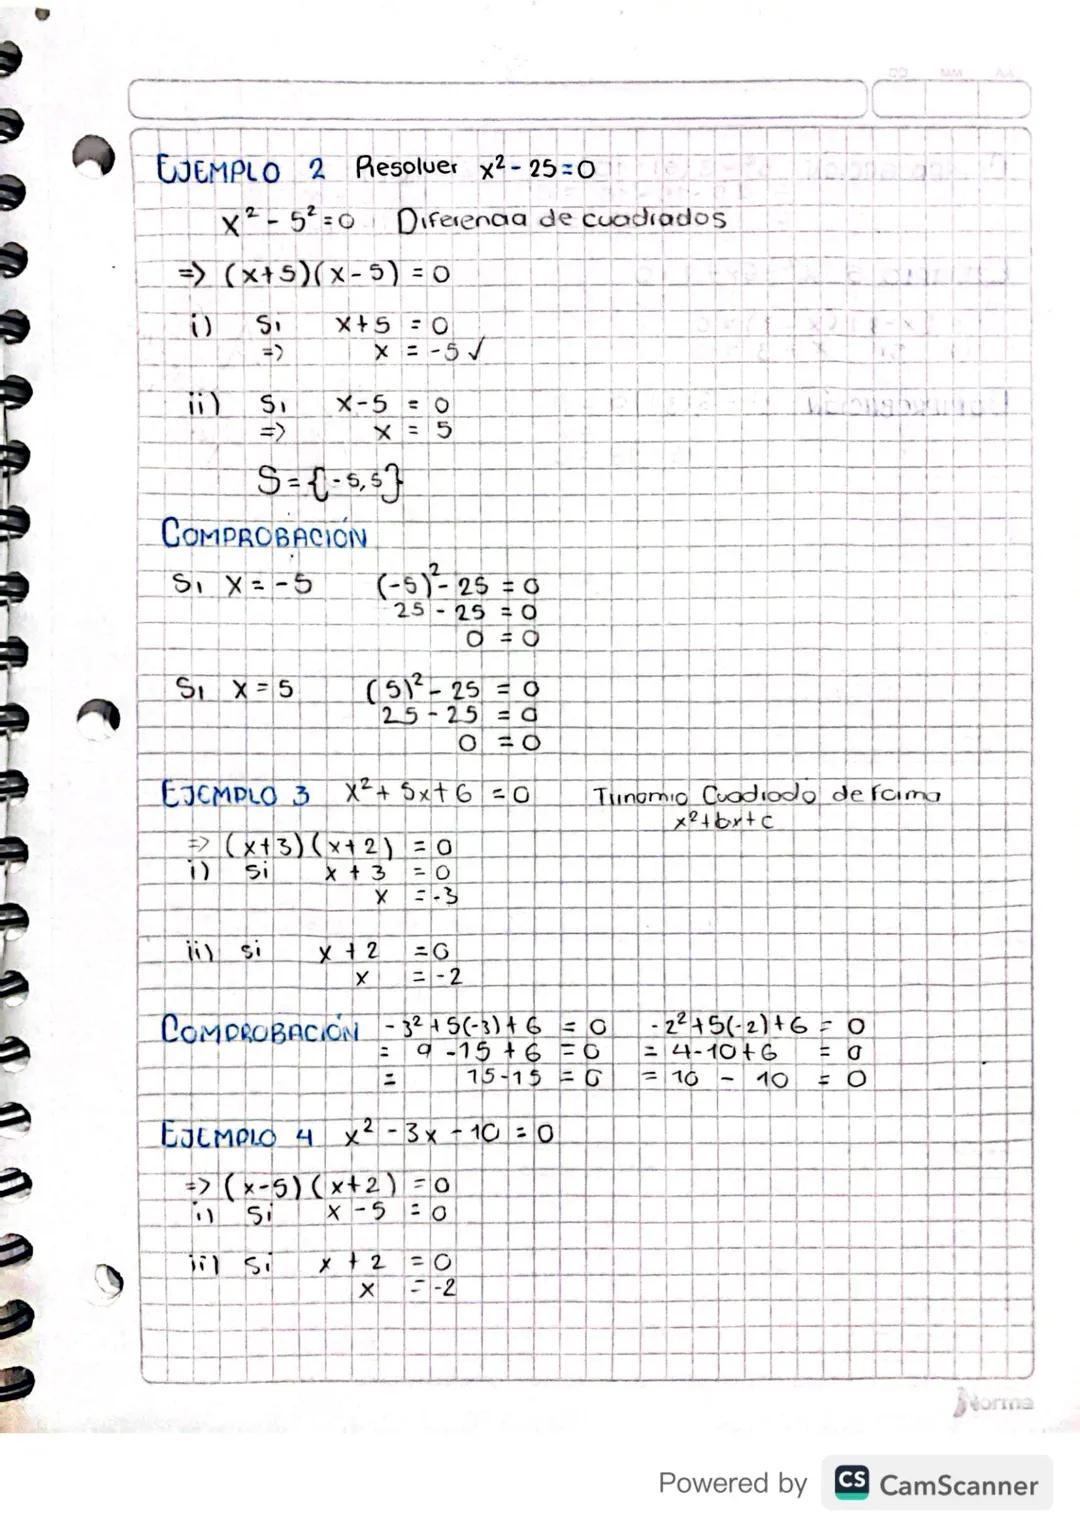 EJEMPLO 2 Resolver x² - 25 = 0
x² - 5² = 0 Diferencia de cuadrados
=> (x+5)(x-5) = 0
i) Si x+5 = 0
=> x = -5 ✓
ii) Si x-5 = 0
=> x = 5
S = {-5, 5}
COMPROBACIÓN
Si x = -5 (-5)² - 25 = 0
25 - 25 = 0
0 = 0
Si x = 5 (5)² - 25 = 0
25 - 25 = 0
0 = 0
EJEMPLO 3 x² + 5x + 6 = 0 Trinomio Cuadrado de forma
x² + bx + c
=> (x+3)(x+2) = 0
i) si x + 3 = 0
x = -3
ii) si x + 2 = 0
x = -2
COMPROBACIÓN -3² + 5(-3) + 6 = 0 -2² + 5(-2) + 6 = 0
= 9 - 15 + 6 = 0 = 4 - 10 + 6 = 0
= 15 - 15 = 0 = 10 - 10 = 0
EJEMPLO 4 x² - 3x - 10 = 0
=> (x-5)(x+2) = 0
i) Si x - 5 = 0
ii) Si x + 2 = 0
x = -2
Norma
Powered by CS CamScanner